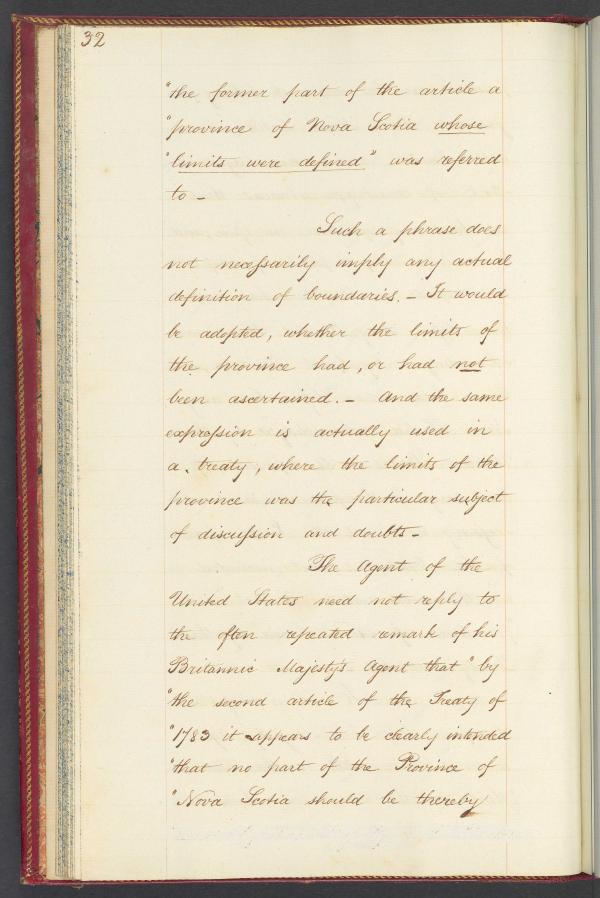 32
"the former part of the article a
"province of Nova Scotia whose
"limits were defined" was referred
to -
Such a phrase does
not neceſsarily imply any actual
definition of boundaries. - It would
be adopted, whether the limits of
the province had, or had not
been ascertained. - And the same
expreſsion is actually used in
a treaty, where the limits of the
province was the particular subject
of discuſsion and doubts -
The Agent of the
United States need not reply to
the often repeated remark of his
Britannic Majesty's Agent that "by
"the second article of the Treaty of
"1783 it appears to be clearly intended
"that no part of the Province of
"Nova Scotia should be thereby